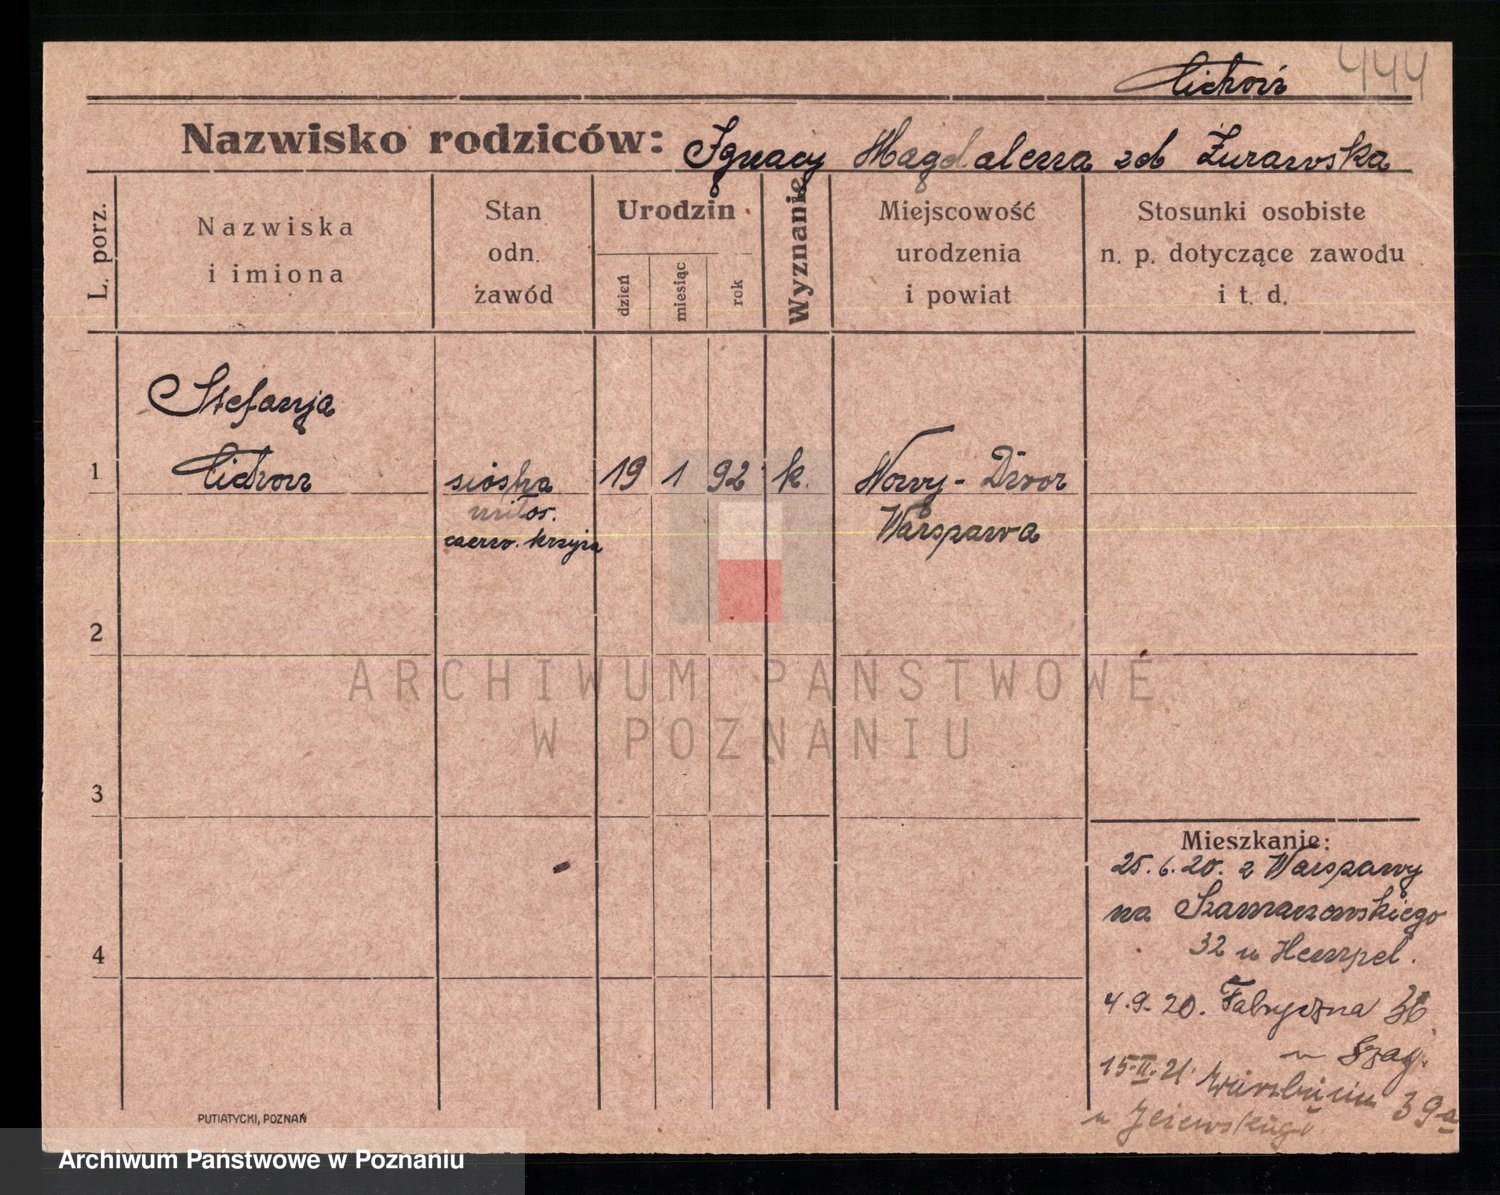 444
Cichoń
Nazwisko rodziców: Ignacy Magdalena zd Żurawska
L. porz.
Nazwiska
i imiona
Stan
odn.
zawód
Urodzin
dzień
miesiąc
rok
Wyznanie
Miejscowość
urodzenia
i powiat
Stosunki osobiste
n. p. dotyczące zawodu
i t. d.
Stefanja
1 Cichoń siostra 19 1 92 k. Nowy-Dwór
miłos. Warszawa
czerw. krzyża
2
ARCHIWUM PAŃSTWOWE
W POZNANIU
3
Mieszkanie:
25.6.20. z Warszawy
na Szamarzewskiego
32 u Hempel.
4
4.9.20. Fabryczna 36
u
15-II-21. 39a
u
PUTIATYCKI, POZNAŃ
Archiwum Państwowe w Poznaniu